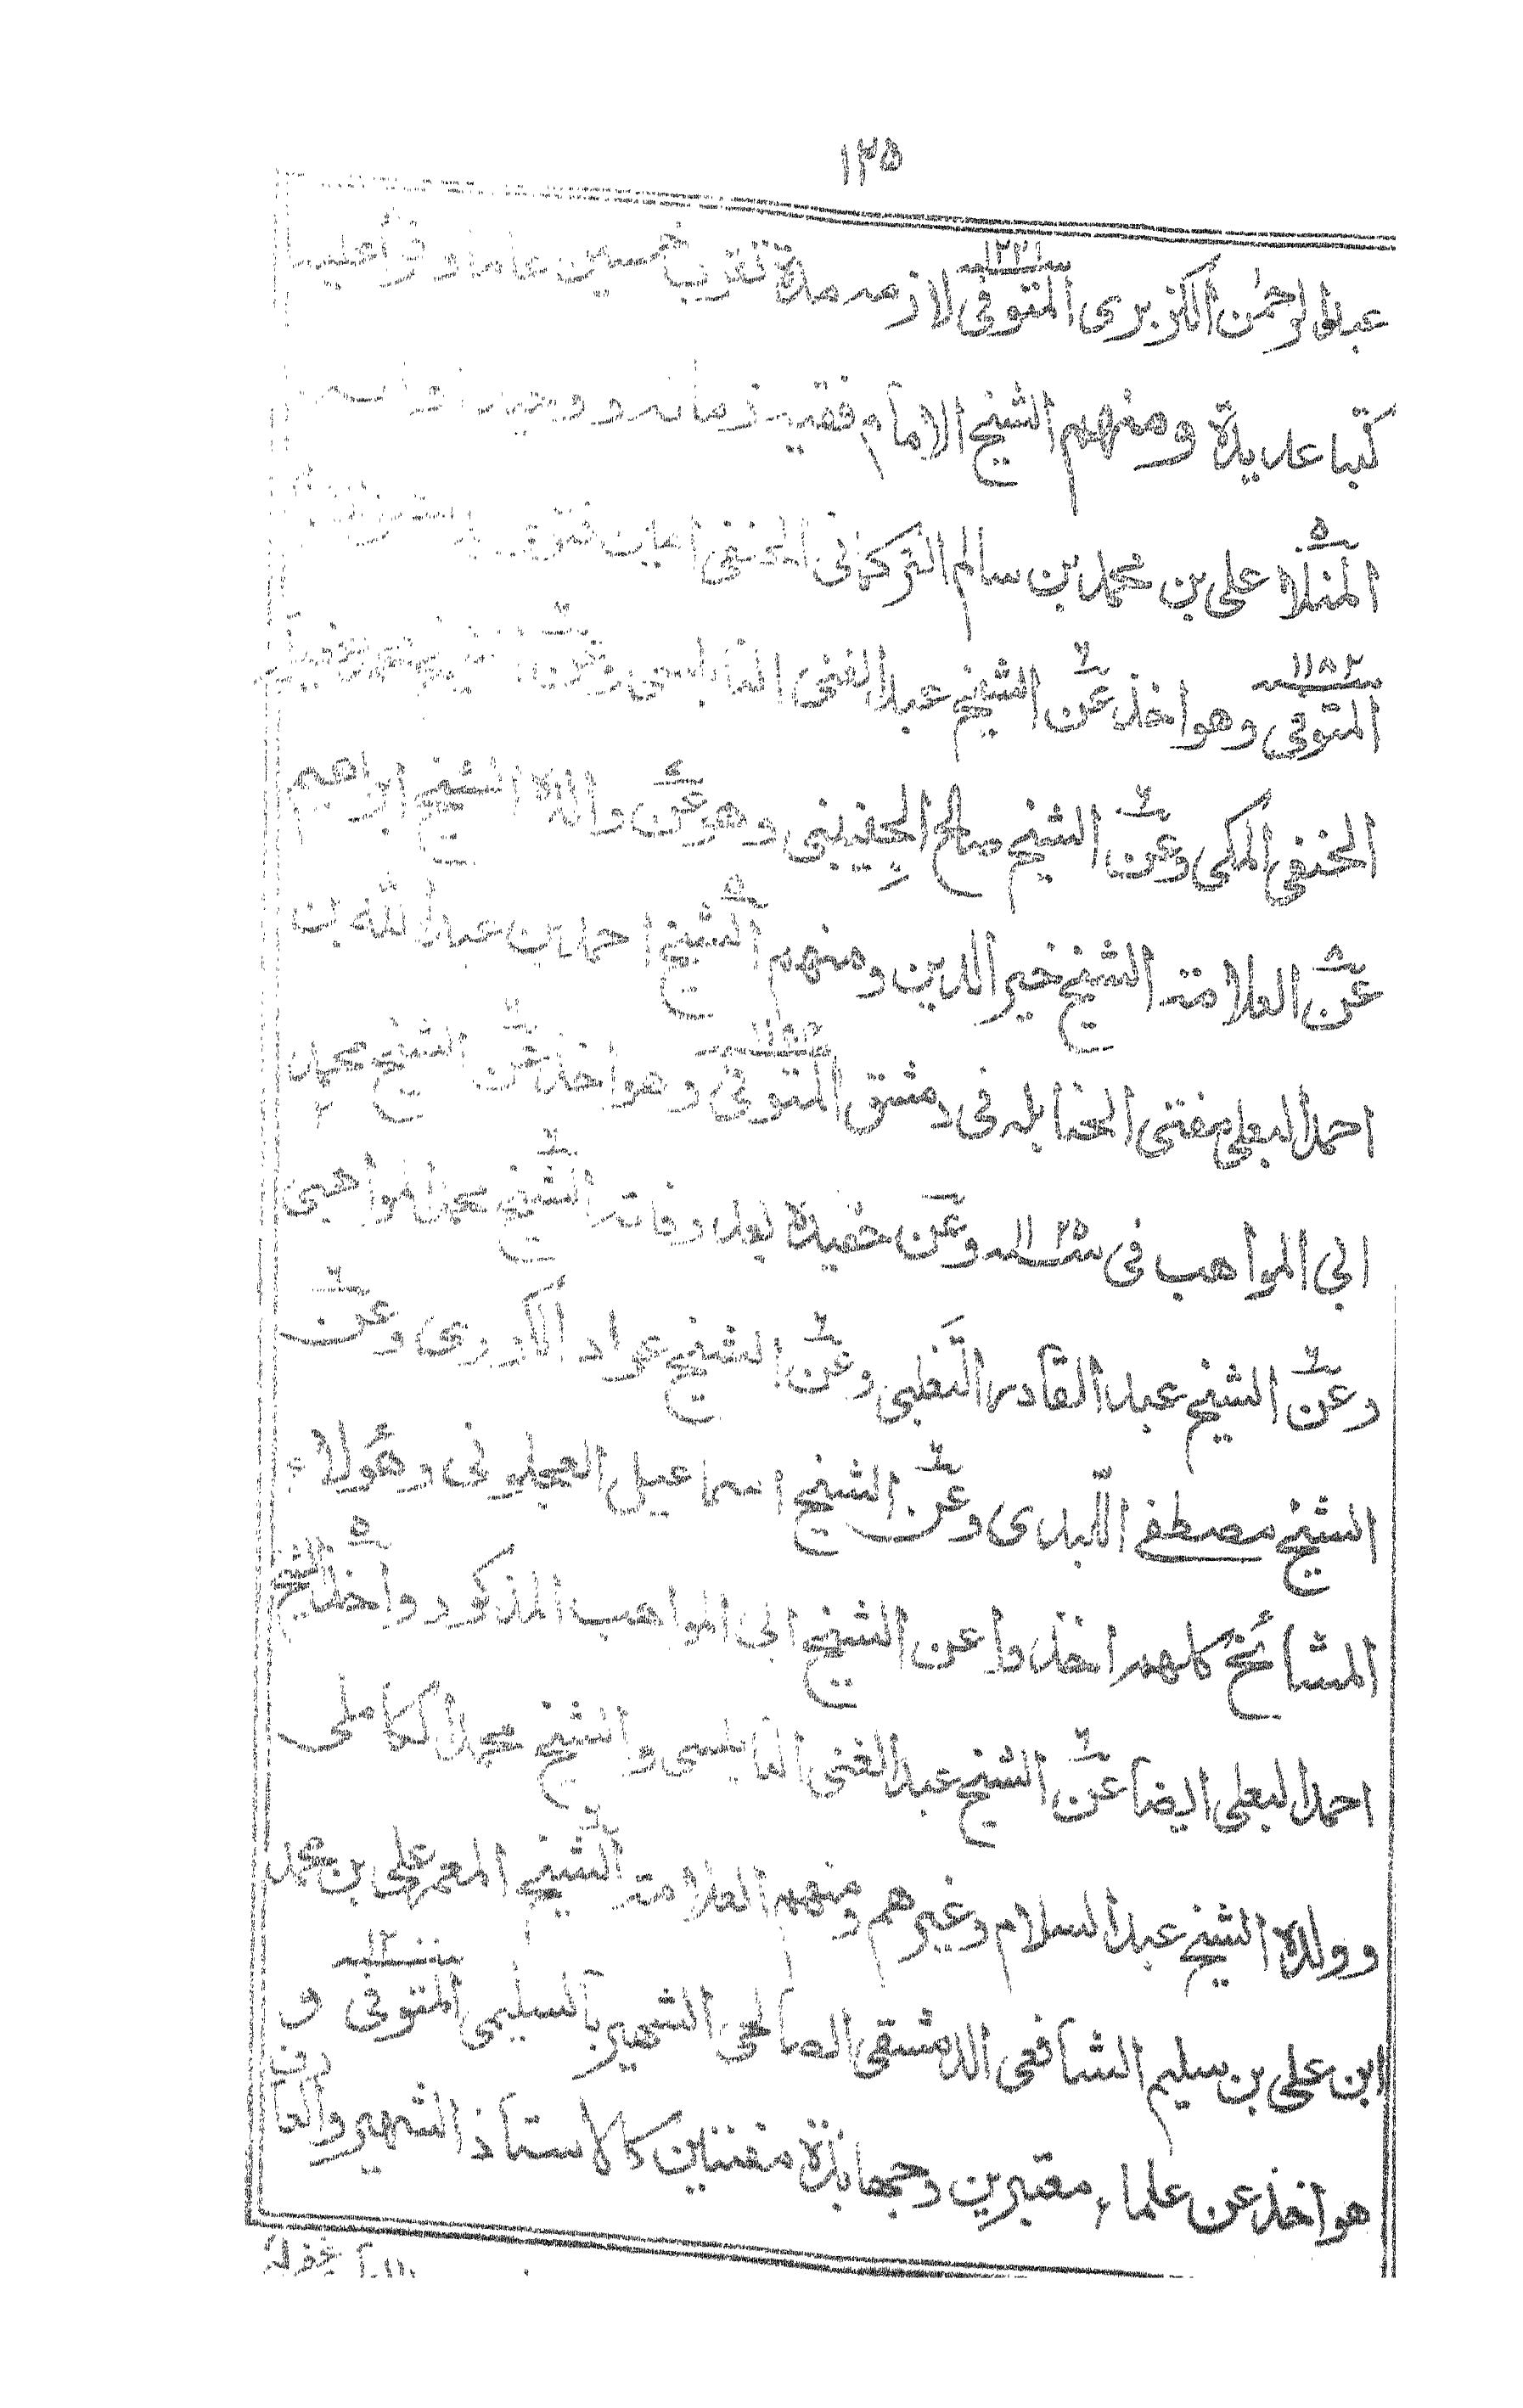 ١٢٥
عبدالرحمٰن الكزبرى المتوفى ١٢٢١ لازمه مدة تقرب خمسين عاما وقرأ عليه
كتبا عديدة ومنهم الشيخ الامام فقيه زمانه ووحيد اوانه
المنلا على بن محمد بن سالم التركمانى الحنفى امين فتوى
المتوفى ١١٨٢ وهو اخذ عن الشيخ عبدالغنى النابلسى وعن الشيخ محمد عقيلة
الحنفى المكى وعن الشيخ صالح الجِنِينى وهو عن والده الشيخ ابراهيم
عن العلامة الشيخ خير الدين ومنهم الشيخ احمد بن عبدالله بن
احمد البعلى مفتى الحنابله فى دمشق المتوفى وهو اخذ عن الشيخ محمد
ابى المواهب فى ١١٢٥ وعن حفيده بعد وفاته الشيخ محمد المواهبى
وعن الشيخ عبدالقادر التَغلبى وعن الشيخ عواد الكورى وعن
الشيخ مصطفى اللّبدى وعن الشيخ اسماعيل العجلونى وهؤلاء
المشائخ كلهم اخذوا عن الشيخ ابى المواهب المذكور واخذ الشيخ
احمد البعلى ايضا عن الشيخ عبدالغنى النابلسى والشيخ محمد الكاملى
وولده الشيخ عبدالسلام وغيرهم ومنهم العلامة الشيخ المعمر على بن محمد
ابن على بن سليم الشافعى الدمشقى الصالحى الشهير بالسليمى المتوفى ١٢٠٠ و
هو اخذ عن علماء معتبرين وجهابذة مفتنين كالاستاذ الشهير والعارف